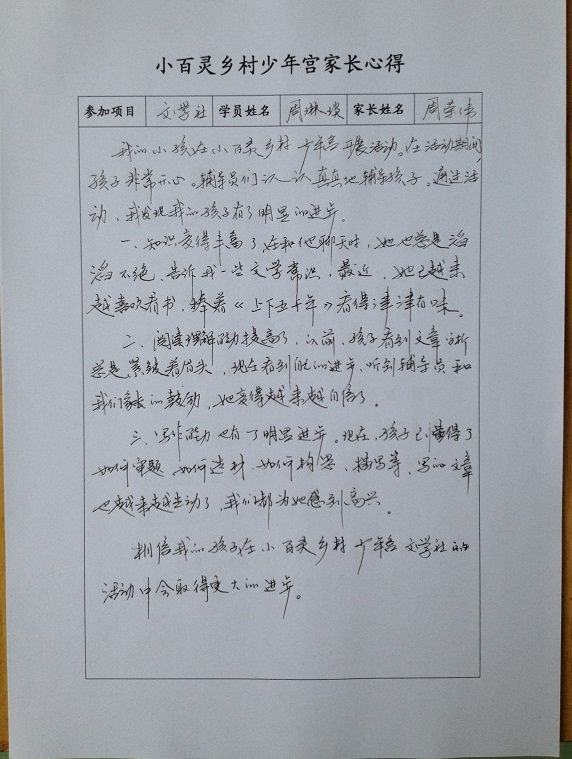 小百灵乡村少年宫家长心得
参加项目 文学社 学员姓名 周琳 家长姓名 周荣伟
我的小孩在小百灵乡村少年宫开展活动。在活动期间,
孩子非常开心。辅导员们认认真真地辅导孩子。通过活
动,我发现我的孩子有了明显的进步。
一、知识变得丰富了,在和他聊天时,她也总是滔
滔不绝,告诉我一些文学常识,最近,她已越来
越喜欢看书,捧着《上下五千年》看得津津有味。
二、阅读理解能力提高了,以前,孩子看到文章分析
总是紧锁着眉头,现在看到她的进步,听到辅导员和
我们家长的鼓动,她变得越来越自信了。
三、写作能力也有了明显进步。现在,孩子已懂得了
如何审题、如何选材、如何构思、描写等,写的文章
也越来越生动了,我们都为她感到高兴。
相信我的孩子在小百灵乡村少年宫文学社的
活动中会取得更大的进步。